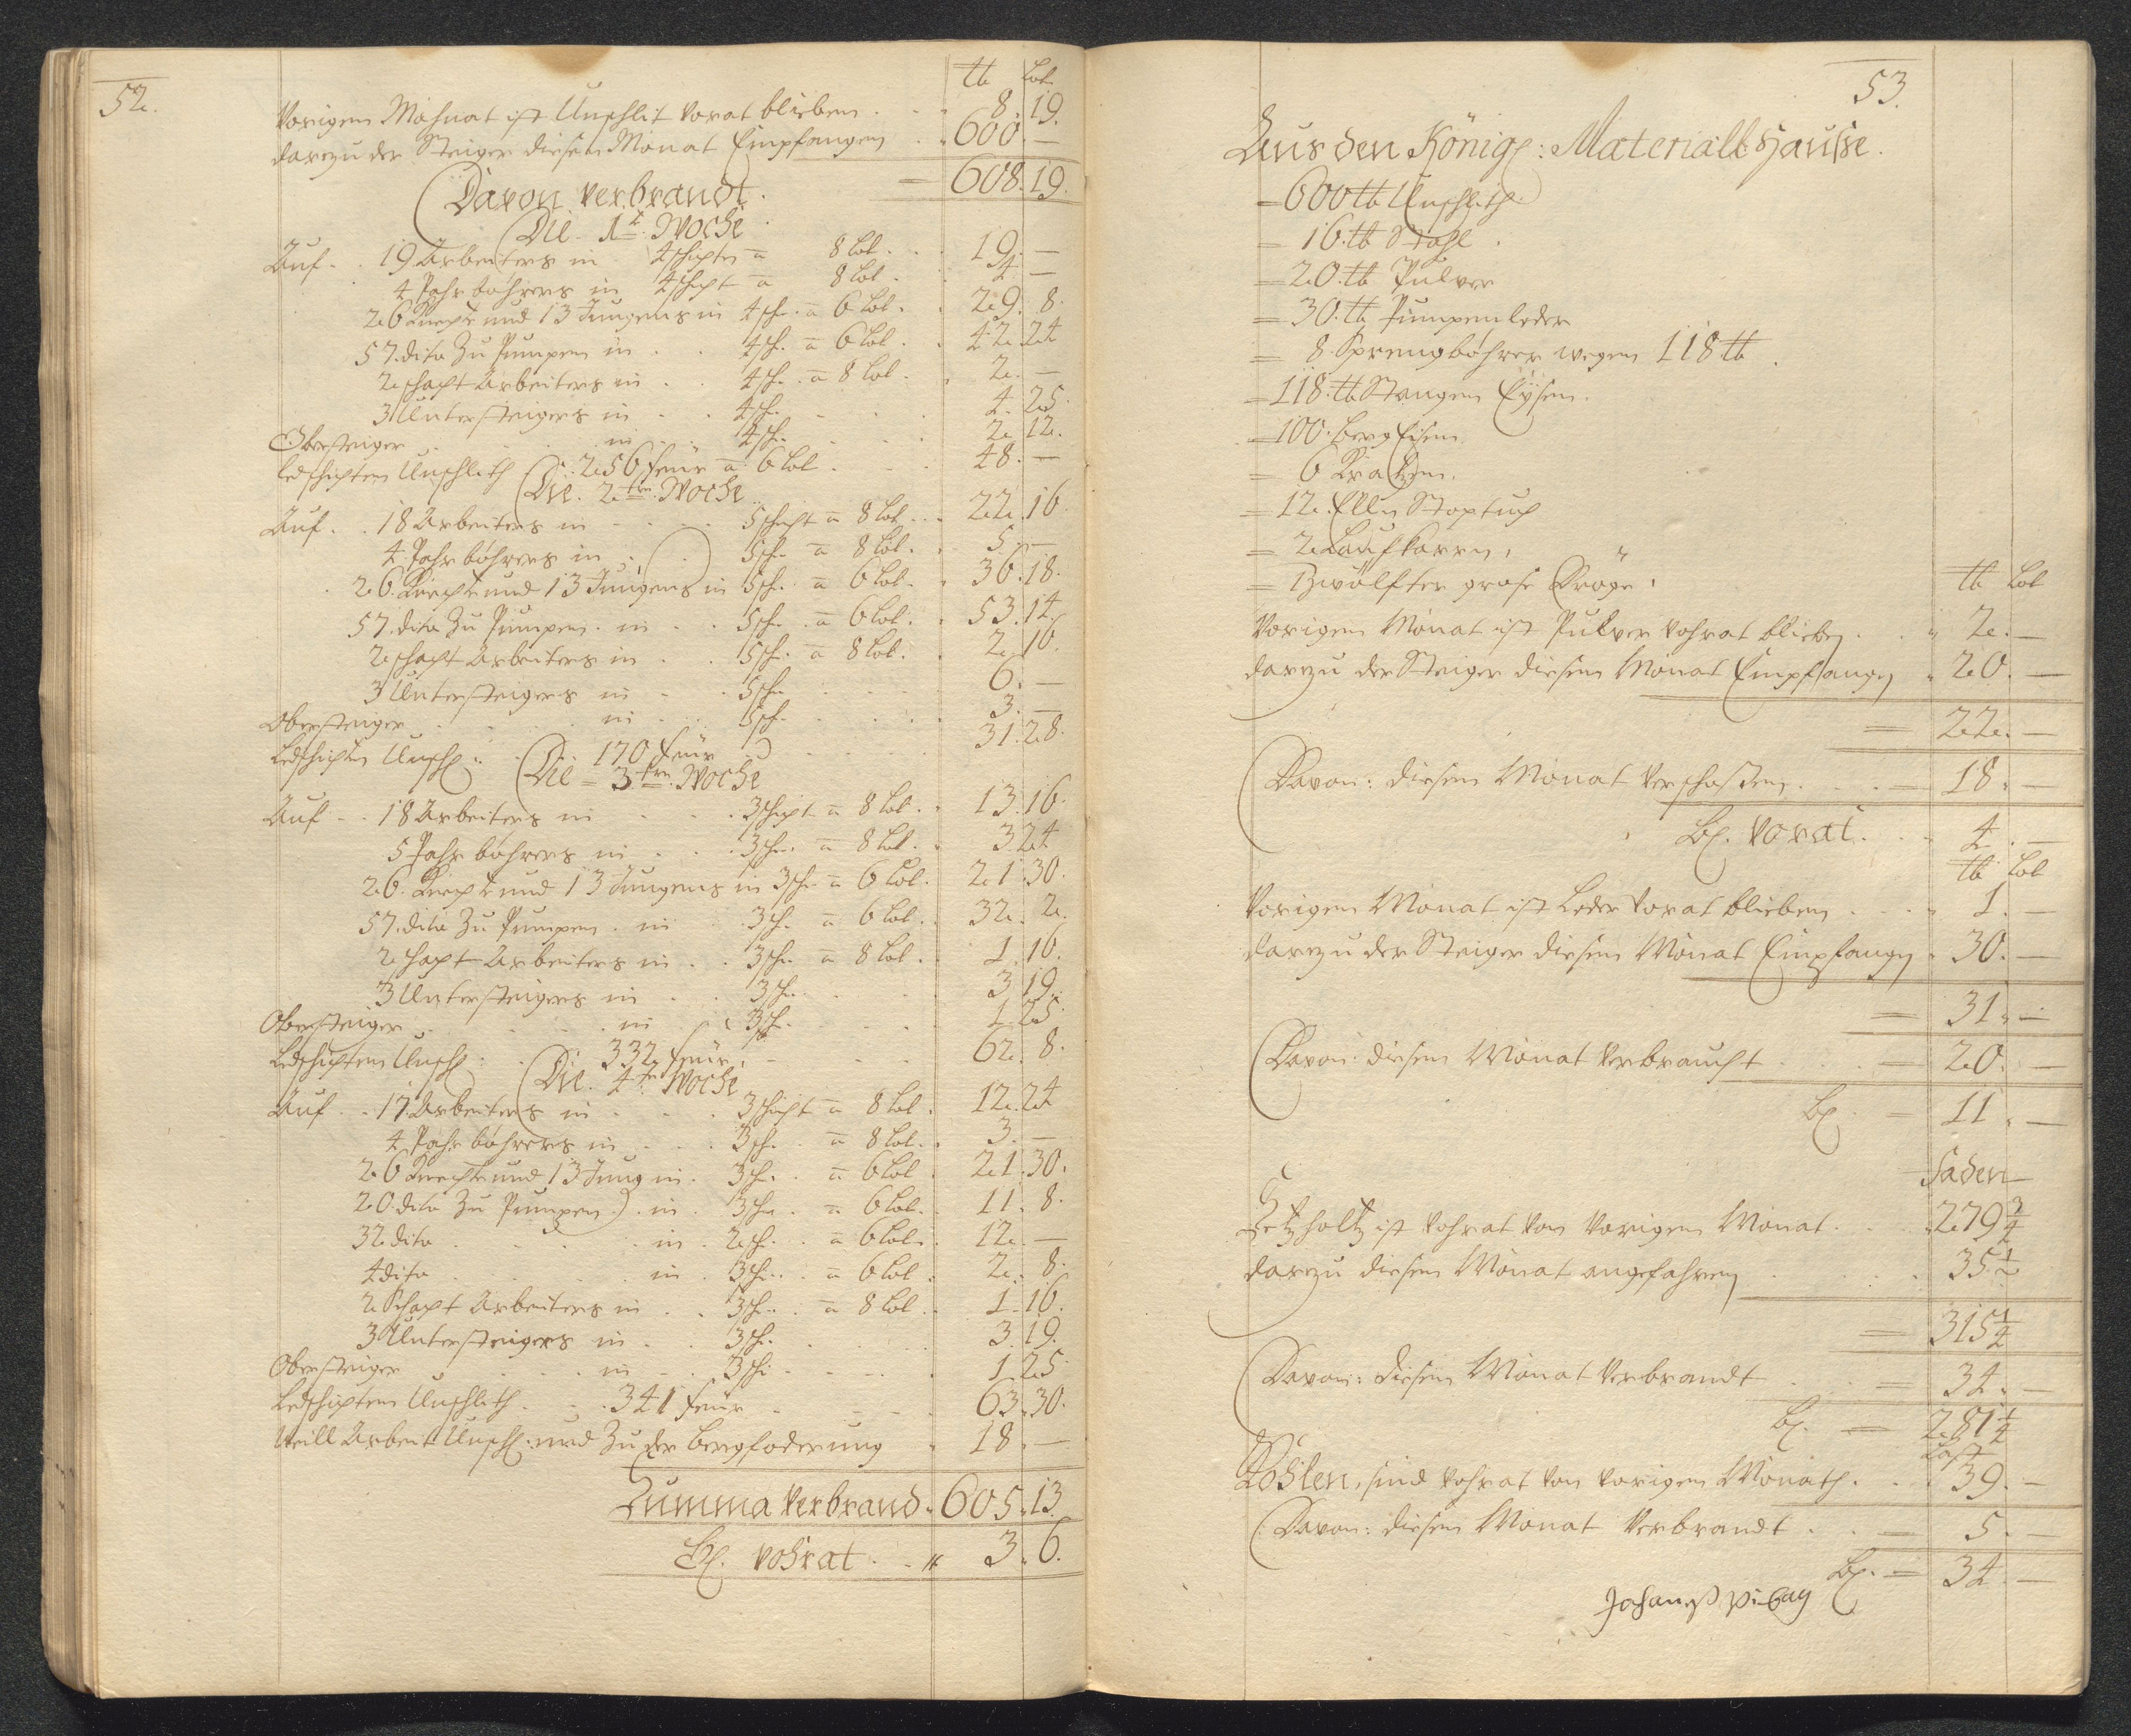 52.
℔ Lot.
Vorigen Mohnat ist Unschlit vorat blieben . . 8. 19.
darzu der Steiger diesen Monat Empfangen . 600. —
= 608. 19.
Davon verbrandt.
Die 1te Woche
Auf . . 19 Arbeiters in 4 schichten a 8 Lot . . . 19. —
4 Pahr böhrers in 4 schicht a 8 Lot . 4 —
26 Knecht und 13 Jungens in 4 sch. a 6 Lot . . 29. 8.
57. dito Zu Pumpen in . . 4 sch. a 6 Lot . . 42. 24
2 schacht Arbeiters in . . 4 sch. a 8 Lot . . 2. —
3 Untersteigers in . . 4 sch. . . . 4. 25.
Obersteiger . . . in . . 4 sch. . . . 2. 12.
Ledschichten Unschleth . 256 feur a 6 Lot . . . 48. —
Die 2te Woche
Auf . . 18 Arbeiters in . . . . 5 schicht a 8 Lot . . . 22. 16.
4. Pahr böhrers in . . . 5 sch. a 8 Lot . . 5. —
26. Knechte und 13 Jungens in 5 sch. a 6 Lot . . 36. 18.
57. dito Zu Pumpen . in . . 5 sch. a 6 Lot . . 53. 14.
2 schacht Arbeiters in . . 5 sch. a 8 Lot . . 2. 16.
3 Untersteigers in . . 5 sch. . . . 6. —
Obersteiger . . . in . . 5 sch. . . . 3. —
Ledschichten Unschl: . 170 feur . . . . 31. 28.
Die = 3te Woche
Auf . . 18 Arbeiters in . . . 3 schicht a 8 Lot . . 13. 16.
5 Pahr böhrers in . . . 3 sch. a 8 Lot . . 3. 24
26. Knecht und 13 Jungens in 3 sch. a 6 Lot . 21. 30.
57. dito Zu Pumpen . in . . 3 sch. a 6 Lot . . 32. 2.
2 schacht Arbeiters in . . 3 sch. a 8 Lot . . 1. 16.
3 Untersteigers in . . 3 sch. . . . 3. 19.
Obersteiger . . . in . . 3 sch. . . . 1. 25.
Ledschichten Unschl: . . 332 feur . . . . 62. 8.
Die 4te Woche
Auf . . 17 Arbeiters in . . . 3 schicht a 8 Lot . 12. 24
4 Pahr böhrers in . . . 3 sch. a 8 Lot . . 3. —
26 Knechte und 13 Jung in . 3 sch. a 6 Lot . 21. 30.
20. dito Zu Pumpen . in . 3 sch. a 6 Lot . . 11. 8.
32 dito . . . in . 2 sch. a 6 Lot . . 12. —
4 dito . . . in . 3 sch. a 6 Lot . 2. 8.
2 Schacht Arbeiters in . . 3 sch. a 8 Lot . . 1. 16.
3 Untersteigers in . . 3 sch. . . . 3. 19.
Obersteiger . . . in . . 3 sch. . . . 1. 25.
Ledschichten Unschleth . . 341 feur . . . . 63. 30.
Weill Arbeit Unschl: und Zu der Bergfoderung . 18. —
Summa Verbrand . 605. 13.
Bl. vohrat . . 3. 6.
53.
Aus den Königl: Materiall Hausse.
= 600 ℔ Unschlith
= 16. ℔ Stahl .
= 20. ℔ Pulver
= 30. ℔ Pumpenleder
= 8. Sprengböhrer wegen 118 ℔ .
= 118. ℔ Stangen Eysen.
= 100. berg Eisen.
= 6 Kratzen.
= 12. Ellen Stoptuch
= 2 Laufkarren.
= Zwölfter grose Tröge .
℔ Lot
Vorigen Monat ist Pulver Vohrat blieben . . 2. —
darzu der Steiger diesen Monat Empfangen . 20. —
= 22. —
Davon: diesen Monat Verschossen . . . = 18. —
Bl. Vorat . . 4. —
℔ Lot
Vorigen Monat ist Leder Vorat blieben . . . 1. —
darzu der Steiger diesen Monat Empfangen . 30. —
= 31. —
Davon: diesen Monat Verbraucht . . . = 20. —
Bl. = 11. —
Faden
Setzholtz ist Vohrat von Vorigen Monat . . . 279 3/4
darzu diesen Monat angefahren . . . . 35 1/2
= 315 1/4
Davon: diesen Monat Verbrandt . . = 34. —
Bl. = 281 1/4
Last
Kohlen, sind Vohrat von Vorigen Monath . . . 39. —
Davon: diesen Monat Verbrandt . . = 5. —
Bl. = 34. —